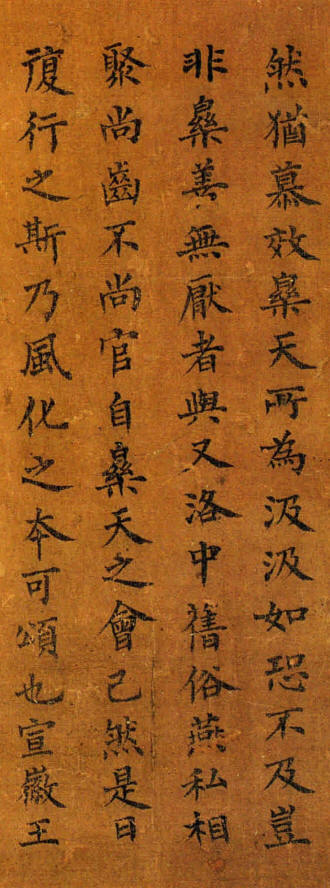 然猶慕效樂天所為汲汲如恐不及豈
非樂善無厭者與又洛中舊俗燕私相
聚尚齒不尚官自樂天之會已然是日
復行之斯乃風化之本可頌也宣徽王